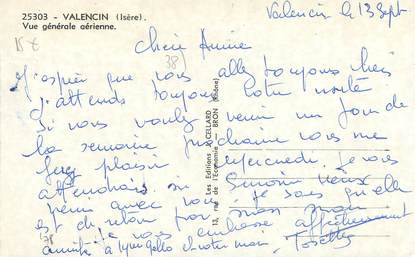 25303 - VALENCIN (Isère).
Vue générale aérienne.
Valencin le 13 Sept
15 €
38)
Chère Amie
J'espère que vous allez toujours bien
j'attends toujours votre visite
Si vous voulez venir un jour de
la semaine prochaine vous me
ferez plaisir mercredi. je vous
attendrai si Simone
peux avec vous je sais qu'elle
est de retour
je vous embrasse affectueusement
amitié à
Les Editions R. CELLARD
13, rue de l'Economie - BRON (Rhône)